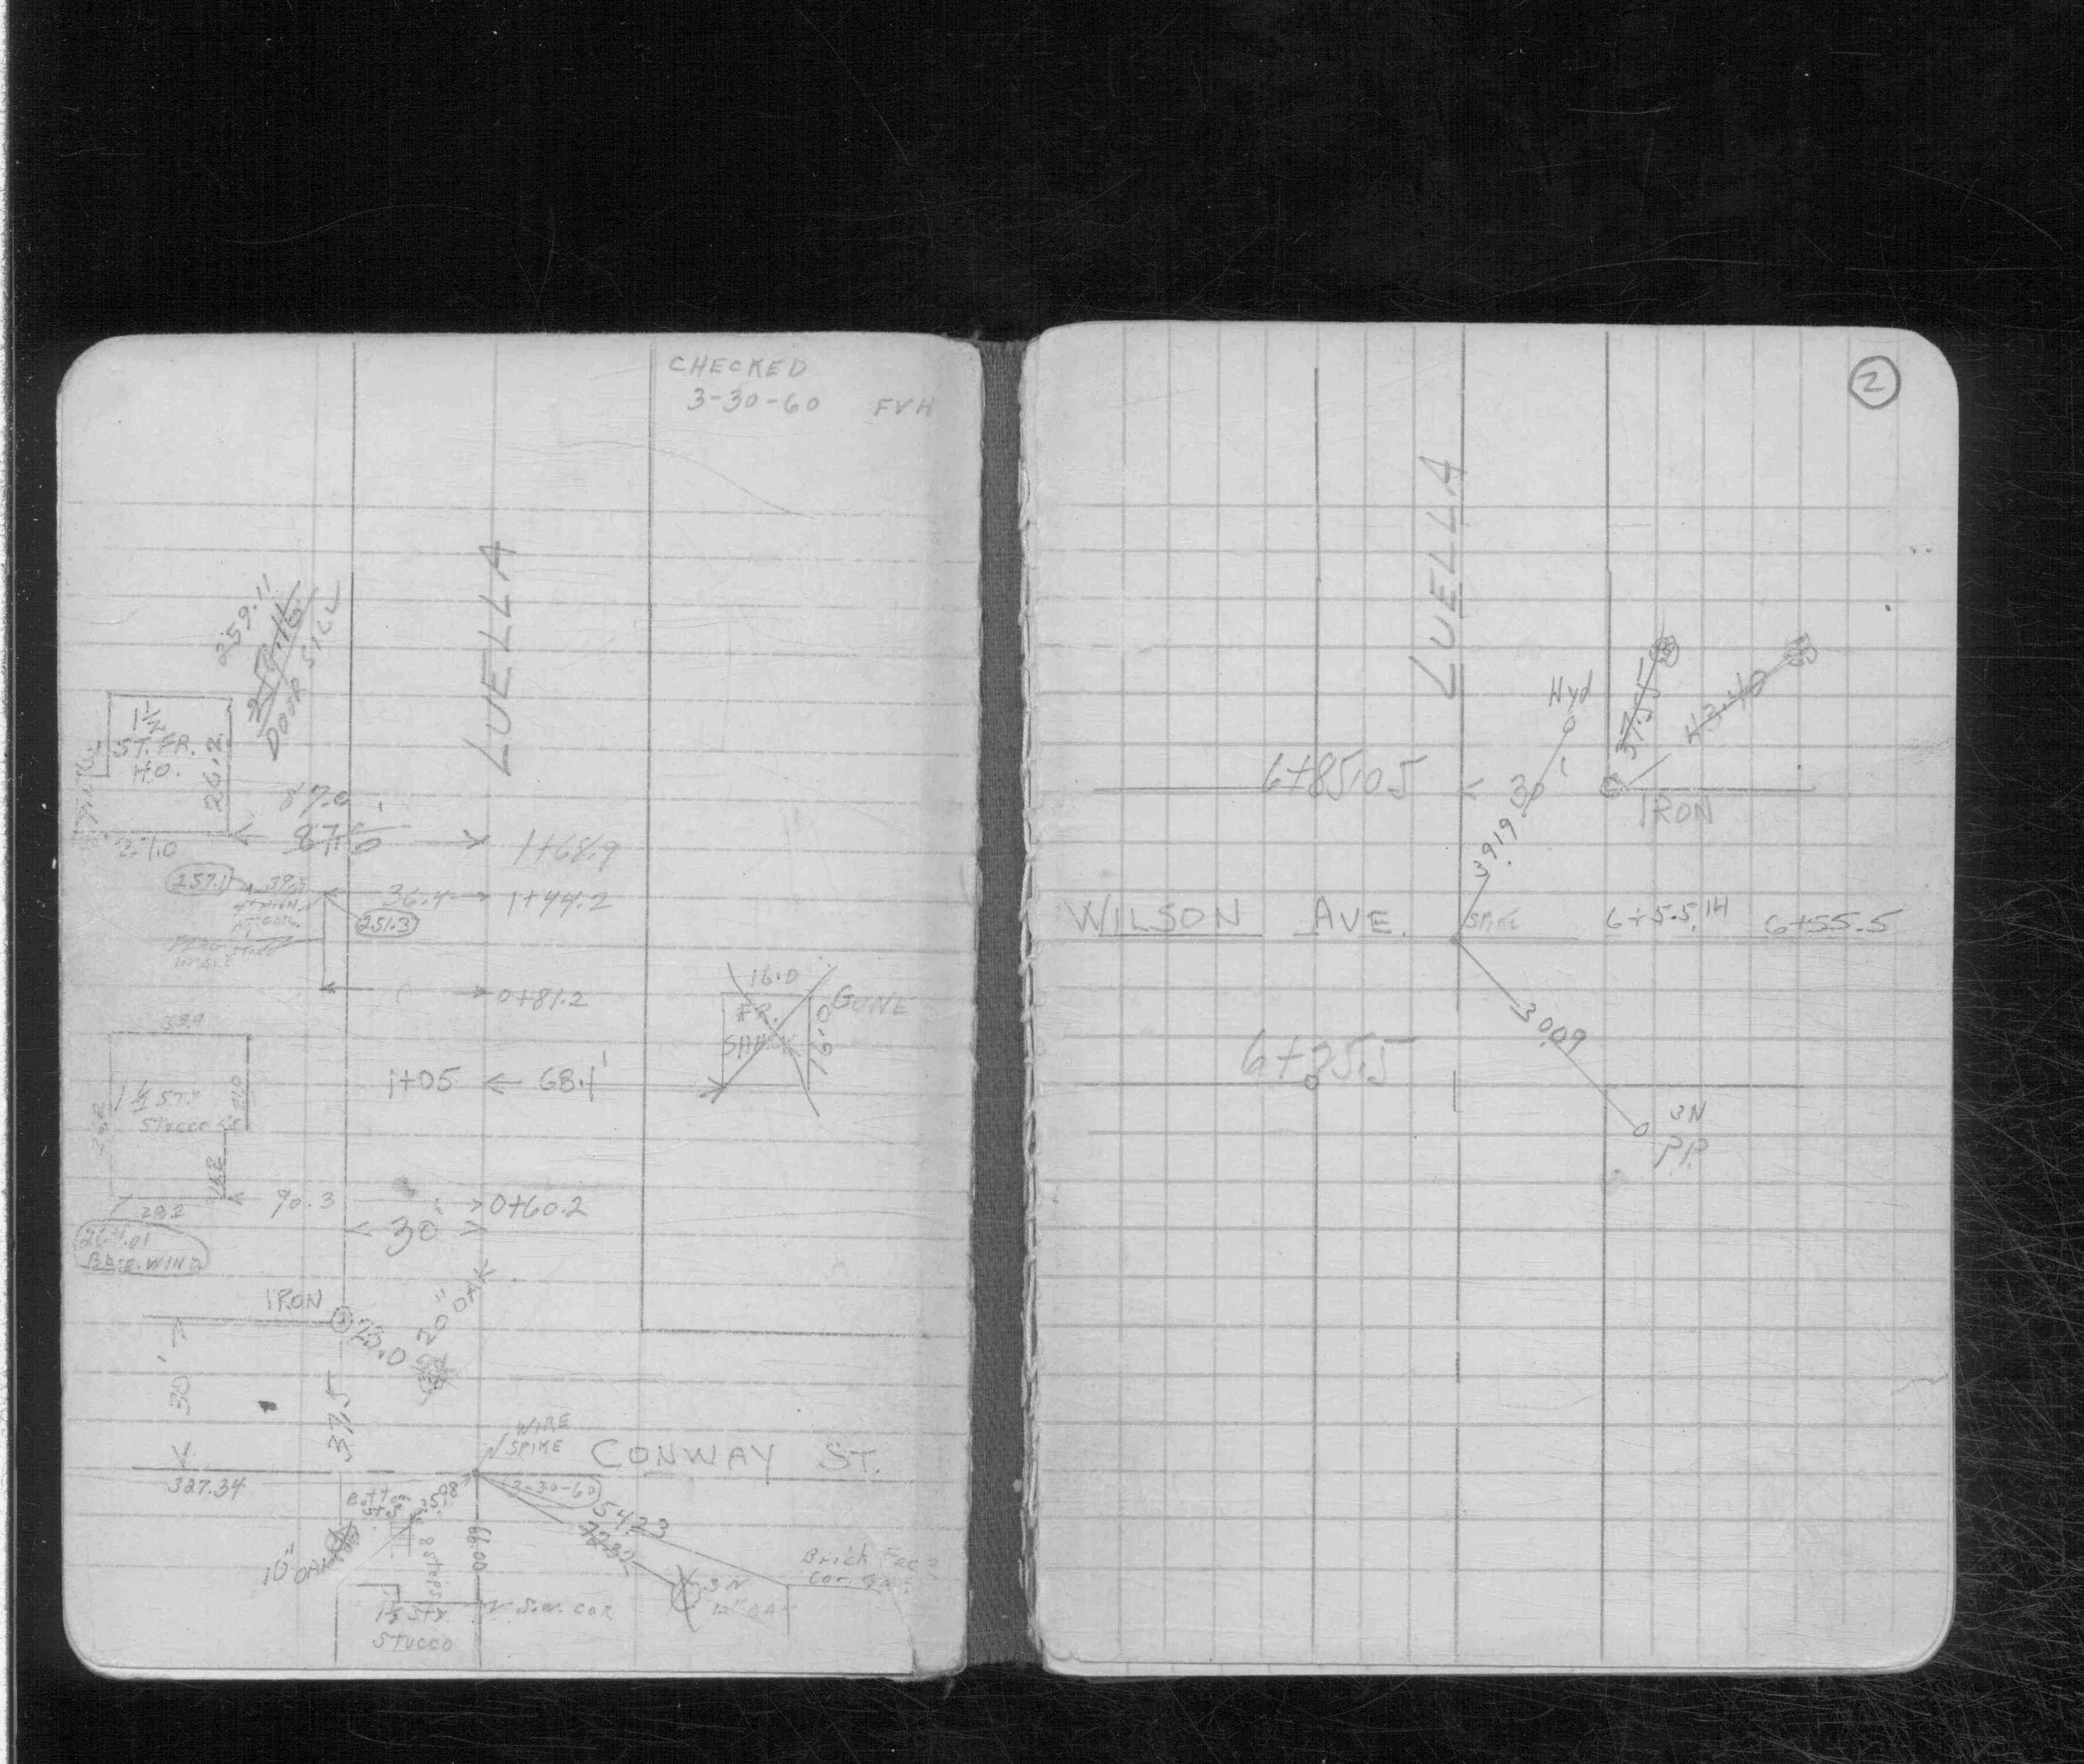 CHECKED
3-30-60 FVH
LUELLA
259.11
DOOR SILL
1½
ST. FR.
HO.
26.2
87.0
27.0
1+68.9
257.1
39.5
36.4
1+44.2
251.3
0+81.2
16.0
FR.
16.0
GONE
1+05
68.1'
1½ STY
STUCCO
90.3
0+60.2
28.2
30'
264.01
BASE. WIND
IRON
23.0
20" OAK
30'
37.5
WIRE
SPIKE
CONWAY ST.
327.34
3-30-60
Bottom
Step
35.98
54.23
66.00
10" OAK
Brick Face
Cor.
3N
12" OAK
1½ STY.
STUCCO
S.W. COR
2
LUELLA
Hyd
37.55
43.40
6+85.05
30'
IRON
39.19
WILSON AVE.
SPIKE
6+55.14
6+55.5
30.09
6+25.5
3N
P.P.